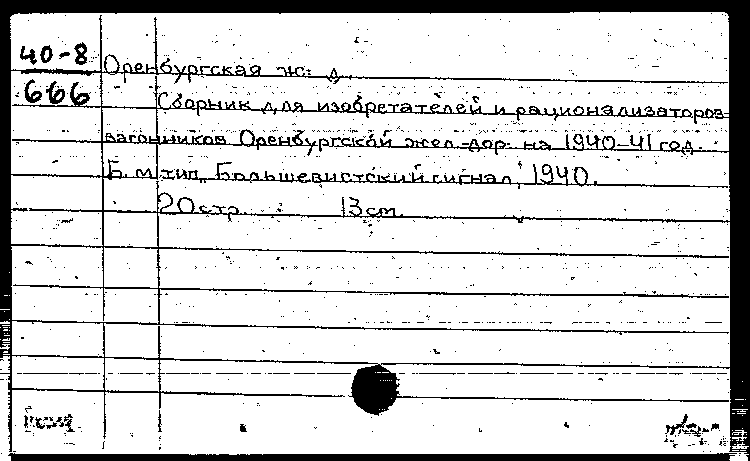 40-8
666
Оренбургская ж. д.
Сборник для изобретателей и рационализаторов
вагонников Оренбургской жел-дор. на 1940-41 год.
Б. м. тип. "Большевистский сигнал", 1940.
20 стр. 13 cm.